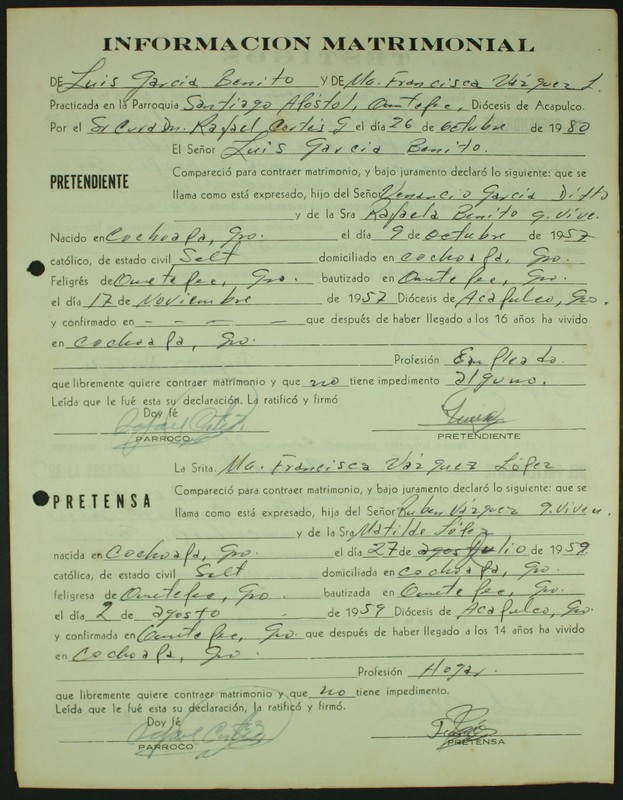 INFORMACION MATRIMONIAL
DE Luis Garcia Benito Y DE Ma. Francisca Vázquez L.
Practicada en la Parroquia Santiago Apóstol, Ometepec, Diócesis de Acapulco.
Por el Sr Cura Dn. Rafael Cortés G el día 26 de octubre de 1980
El Señor Luis Garcia Benito.
Compareció para contraer matrimonio, y bajo juramento declaró lo siguiente: que se
PRETENDIENTE
llama como está expresado, hijo del Señor Venancio Garcia Ditto
y de la Sra Rafaela Benito q. vive.
Nacido en Cochoapa, Gro. el día 9 de octubre de 1957
católico, de estado civil Solt domiciliado en Cochoapa, Gro.
Feligrés de Ometepec, Gro. bautizado en Ometepec, Gro.
el día 17 de Noviembre de 1957 Diócesis de Acapulco, Gro.
y confirmado en - - - - que después de haber llegado a los 16 años ha vivido
en Cochoapa, Gro.
Profesión Empleado.
que libremente quiere contraer matrimonio y que no tiene impedimento alguno.
Leída que le fué esta su declaración. La ratificó y firmó
Doy fé
PARROCO PRETENDIENTE
La Srita. Ma. Francisca Vázquez López
Compareció para contraer matrimonio, y bajo juramento declaró lo siguiente: que se
PRETENSA
llama como está expresado, hija del Señor Ruben Vázquez q. viven.
y de la Sra Matilde López
nacida en Cochoapa, Gro. el día 27 de agos Julio de 1959
católica, de estado civil Solt domiciliada en Cochoapa, Gro.
feligresa de Ometepec, Gro. bautizada en Ometepec, Gro.
el día 2 de agosto de 1959 Diócesis de Acapulco, Gro.
y confirmada en Ometepec, Gro. que después de haber llegado a los 14 años ha vivido
en Cochoapa, Gro.
Profesión Hogar.
que libremente quiere contraer matrimonio y que no tiene impedimento.
Leída que le fué esta su declaración, la ratificó y firmó.
Doy fé
PARROCO PRETENSA